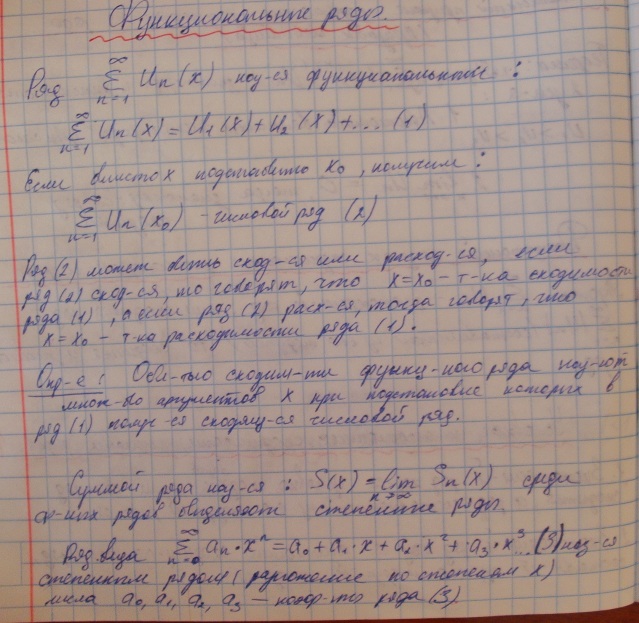 Функциональные ряды.
Ряд ∞∑n=1 Un(x) наз-ся функциональным:
∞∑n=1 Un(x) = U1(x) + U2(x) + ... (1)
Если вместо x подставить x0, получим:
∞∑n=1 Un(x0) - числовой ряд (2)
Ряд (2) может быть сход-ся или расход-ся, если
ряд (2) сход-ся, то говорят, что x=x0 – т-ка сходимости
ряда (1), а если ряд (2) расх-ся, тогда говорят, что
x=x0 – т-ка расходимости ряда (1).
Опр-е: Обл-тью сходим-ти функц-ного ряда наз-ют
множ-во аргументов x при подстановке которых в
ряд (1) получ-ся сходящ-ся числовой ряд.
Суммой ряда наз-ся: S(x) = lim n→∞ Sn(x) среди
ф-ных рядов выделяют степенные ряды.
Ряд вида ∞∑n=0 an·x^n = a0 + a1·x + a2·x^2 + a3·x^3... (3) наз-ся
степенным рядом (разложение по степеням x)
числа a0, a1, a2, a3 — коэф-ты ряда (3)